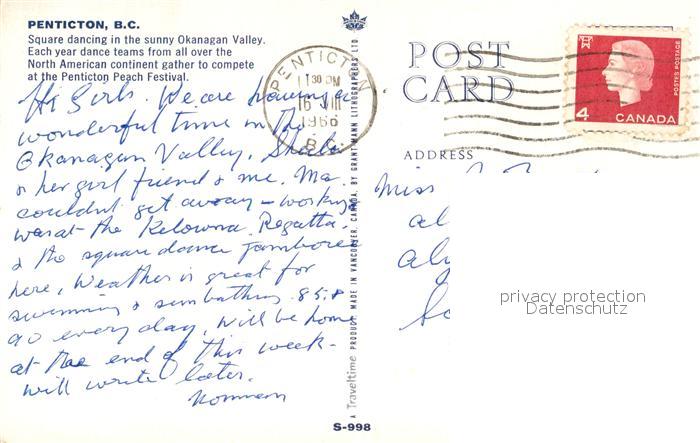 PENTICTON, B.C.
Square dancing in the sunny Okanagan Valley.
Each year dance teams from all over the
North American continent gather to compete
at the Penticton Peach Festival.
Hi Girls. We are having a
wonderful time in the
Okanagan Valley,
& her girl friend & me. Ma
couldnt get away - working
was at the Kelowna Regatta
& the square dance jamboree
here, Weather is great for
swimming & sun bathing. 85,
90 every day, will be home
at the end of this week-
will write later.
Norman
A Traveltime PRODUCT MADE IN VANCOUVER, CANADA, BY GRANT-MANN LITHOGRAPHERS LTD.
S-998
PENTICTON
30 PM
16
1966
B.C.
POST
CARD
POSTES POSTAGE
4
CANADA
ADDRESS
Miss
privacy protection
Datenschutz